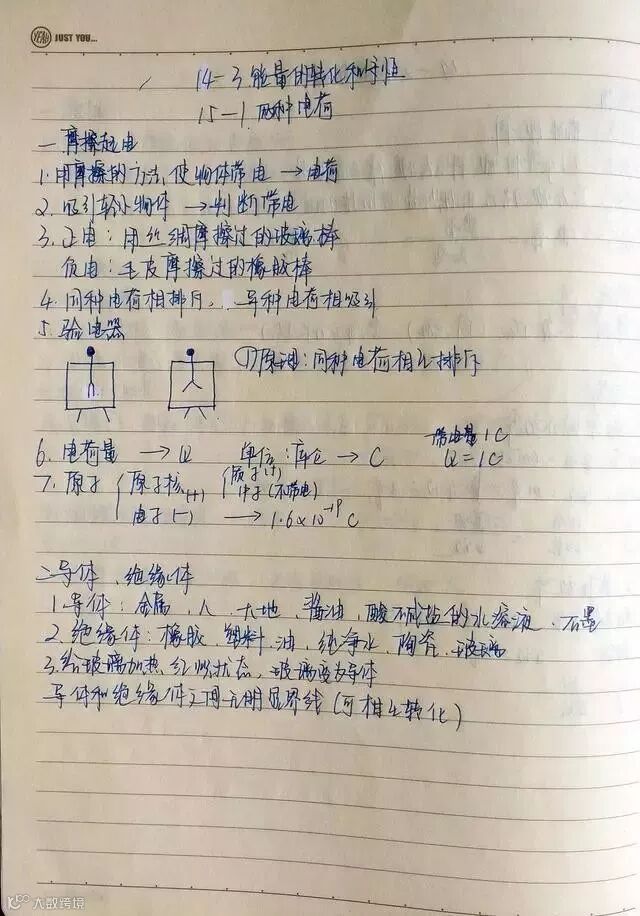 YEAH JUST YOU...
14-3 能量的转化和守恒
15-1 两种电荷
一 摩擦起电
1. 用摩擦的方法,使物体带电 → 电荷
2. 吸引轻小物体 → 判断带电
3. 正电:用丝绸摩擦过的玻璃棒
负电:毛皮摩擦过的橡胶棒
4. 同种电荷相排斥, 异种电荷相吸引
5. 验电器
①原理:同种电荷相互排斥
带电量1C
6. 电荷量 → Q 单位:库仑 → C Q=1C
7. 原子 原子核(+) 质子(+)
中子(不带电)
电子(-) → 1.6×10⁻¹⁹C
二 导体、绝缘体
1. 导体:金属、人、大地、酱油、酸碱盐的水溶液、石墨
2. 绝缘体:橡胶、塑料、油、纯净水、陶瓷、玻璃
3. 给玻璃加热红炽状态,玻璃变为导体
导体和绝缘体之间无明显界线(可相互转化)
大数跨境